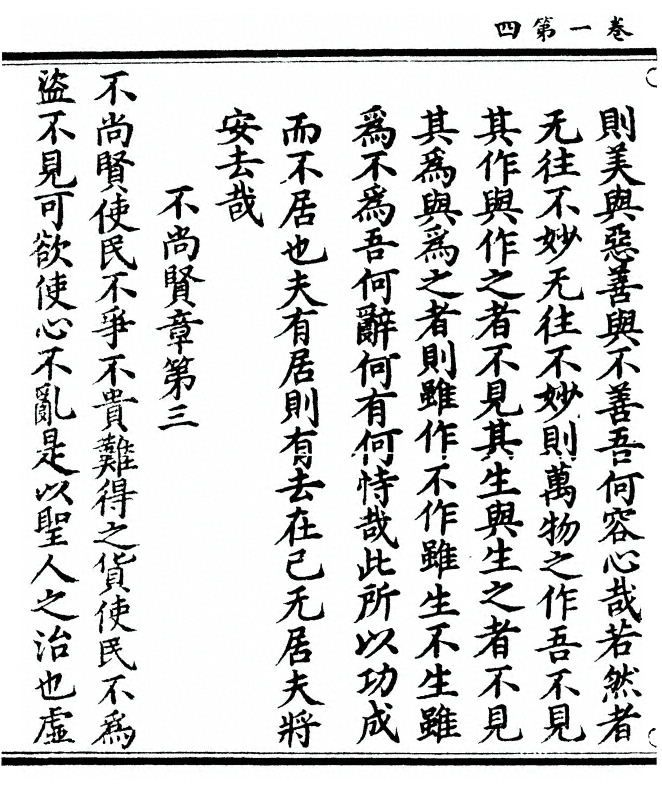 卷一第四
則美與惡善與不善吾何容心哉若然者
无往不妙无往不妙則萬物之作吾不見
其作與作之者不見其生與生之者不見
其爲與爲之者則雖作不作雖生不生雖
爲不爲吾何辭何有何恃哉此所以功成
而不居也夫有居則有去在己无居夫將
安去哉
不尚賢章第三
不尚賢使民不爭不貴難得之貨使民不爲
盜不見可欲使心不亂是以聖人之治也虛